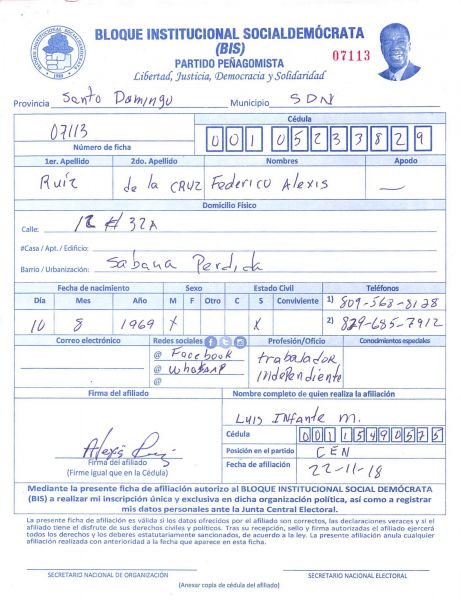 BLOQUE INSTITUCIONAL SOCIALDEMÓCRATA
(BIS)
PARTIDO PEÑAGOMISTA
07113
Libertad, Justicia, Democracia y Solidaridad
Provincia Santo Domingo Municipio SDN
Cédula
07113 001 0523382 9
Número de ficha
1er. Apellido 2do. Apellido Nombres Apodo
Ruiz de la CRUZ Federico Alexis —
Domicilio Físico
Calle: 12 # 32A
#Casa / Apt. / Edificio:
Barrio / Urbanización: Sabana Perdida
Fecha de nacimiento Sexo Estado Civil Teléfonos
Día Mes Año M F Otro C S Conviviente 1) 809-568-8128
10 8 1969 X X 2) 829-685-7912
Correo electrónico Redes sociales Profesión/Oficio Conocimientos especiales
@ Facebook trabajador
@ WhatsAP independiente
@
Firma del afiliado Nombre completo de quien realiza la afiliación
Luis Infante M.
Cédula 001 1549057 5
Alexis Ruiz
Posición en el partido CEN
Firma del afiliado
(Firme igual que en la Cédula)
Fecha de afiliación 22-11-18
Mediante la presente ficha de afiliación autorizo al BLOQUE INSTITUCIONAL SOCIAL DEMÓCRATA
(BIS) a realizar mi inscripción única y exclusiva en dicha organización política, así como a registrar
mis datos personales ante la Junta Central Electoral.
La presente ficha de afiliación es válida si los datos ofrecidos por el afiliado son correctos, las declaraciones veraces y si el
afiliado tiene el disfrute de sus derechos civiles y políticos. Tras su recepción, sello y firma autorizados el afiliado ejercerá
todos los derechos y los deberes estatutariamente sancionados, de acuerdo a la ley. La presente afiliación anula cualquier
afiliación realizada con anterioridad a la fecha que aparece en esta ficha.
SECRETARIO NACIONAL DE ORGANIZACIÓN SECRETARIO NACIONAL ELECTORAL
(Anexar copia de cédula del afiliado)